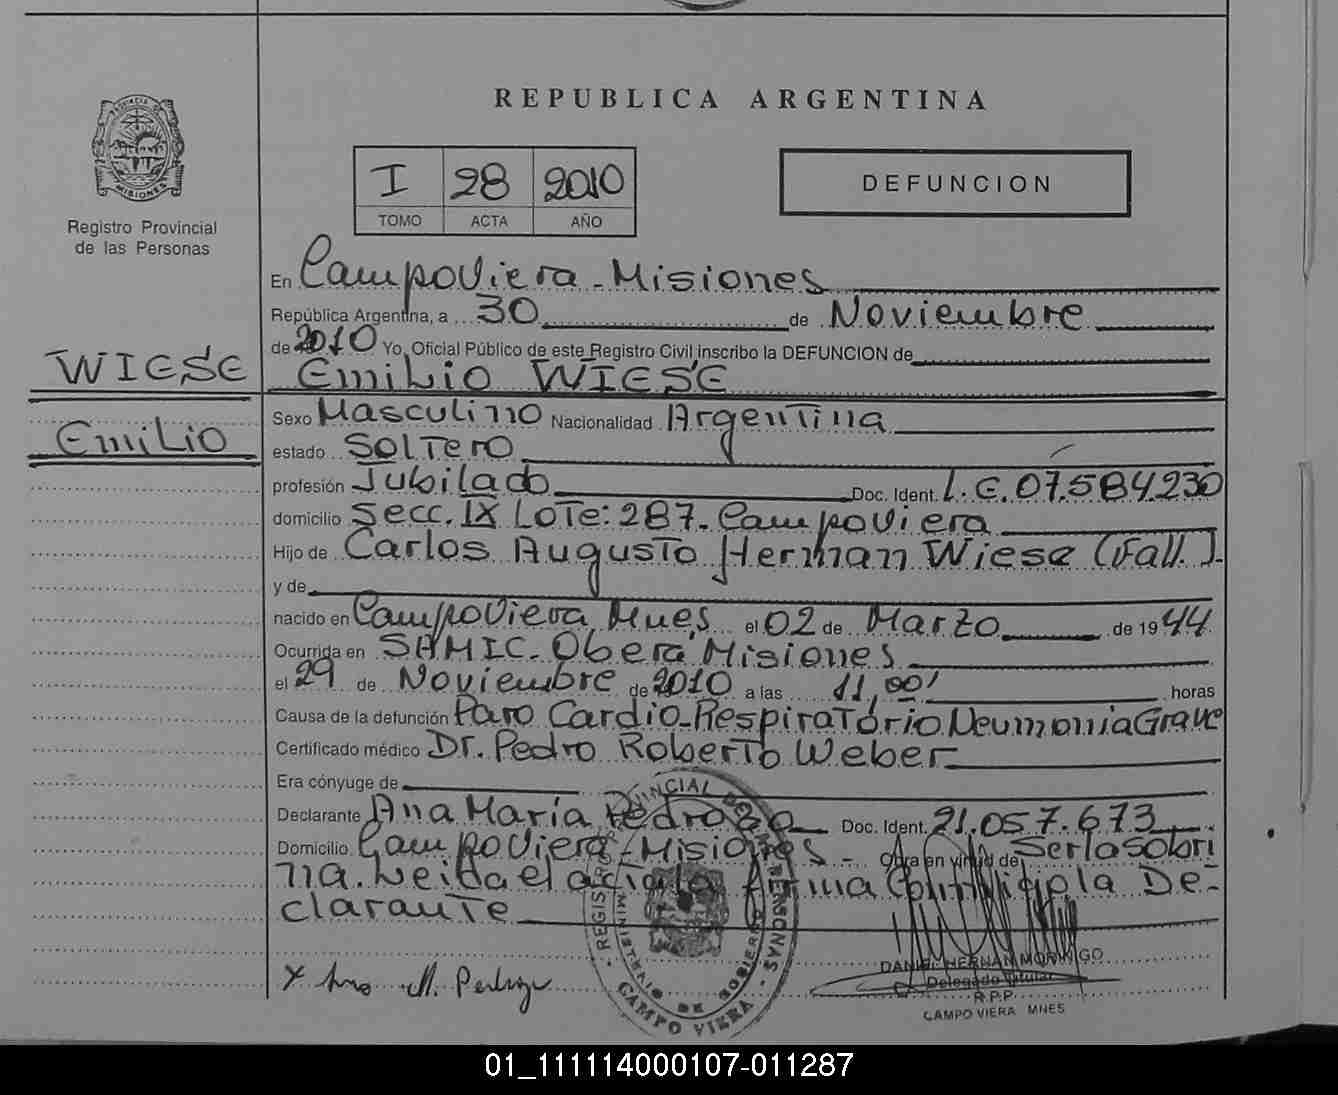 REPUBLICA ARGENTINA
PROVINCIA DE MISIONES
Registro Provincial
de las Personas
I 28 2010
TOMO ACTA AÑO
DEFUNCION
En Campo Viera - Misiones
República Argentina, a 30 de Noviembre
de 2010 Yo, Oficial Público de este Registro Civil inscribo la DEFUNCION de
WIESE
Emilio WIESE
Emilio
Sexo Masculino Nacionalidad Argentina
estado Soltero
profesión Jubilado Doc. Ident. L.E. 07.584.230
domicilio Secc. IX Lote: 287. Campo Viera
Hijo de Carlos Augusto Herman Wiese (Fall.)
y de
nacido en Campo Viera Mnes el 02 de Marzo de 1944
Ocurrida en SAMIC. Oberá Misiones
el 29 de Noviembre de 2010 a las 11,00' horas
Causa de la defunción Paro Cardio-Respiratorio Neumonia Grave
Certificado médico Dr. Pedro Roberto Weber
Era cónyuge de
Declarante Ana María Pedrozo Doc. Ident. 21.057.673
Domicilio Campo Viera - Misiones - Obra en virtud de Ser la Sobri
na. Leida el acta la firma Conmigo la De-
clarante
DANIEL HERNAN MORINIGO
Delegado Titular
R.P.P.
CAMPO VIERA MNES
REGISTRO PROVINCIAL DE LAS PERSONAS
MINISTERIO DE GOBIERNO
CAMPO VIERA
01_111114000107-011287